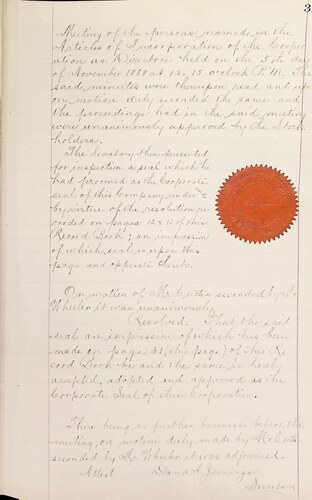 3
Meeting of the persons named in the
Articles of Incorporation of the Corpor
ation as Directors held on the 5th day
of November 1880 at 12.15 o'clock P.M. The
said minutes were thereupon read and upon
on motion duly seconded the same and
the proceedings had in the said meeting
were unanimously approved by the Stock
holders.
The Secretary then presented
for inspection a seal which he
had procured as the Corporate
seal of this Company under &
by virtue of the resolution re
corded on pages 12 & 13 of this
Record Book; an impression
of which seal is upon this
page and opposite hereto.
On motion of Mr Cutter seconded by Mr
Wheeler it was unanimously
Resolved. That the said
seal an impression of which has been
made on page 31 (this page) of this Re
cord Book be and the same is hereby
accepted, adopted and approved as the
Corporate Seal of this Corporation.
There being no further business before the
meeting, on motion duly made by Mr Cutter
seconded by Mr Wheeler it was adjourned.
Attest David A. Jennings
Secretary